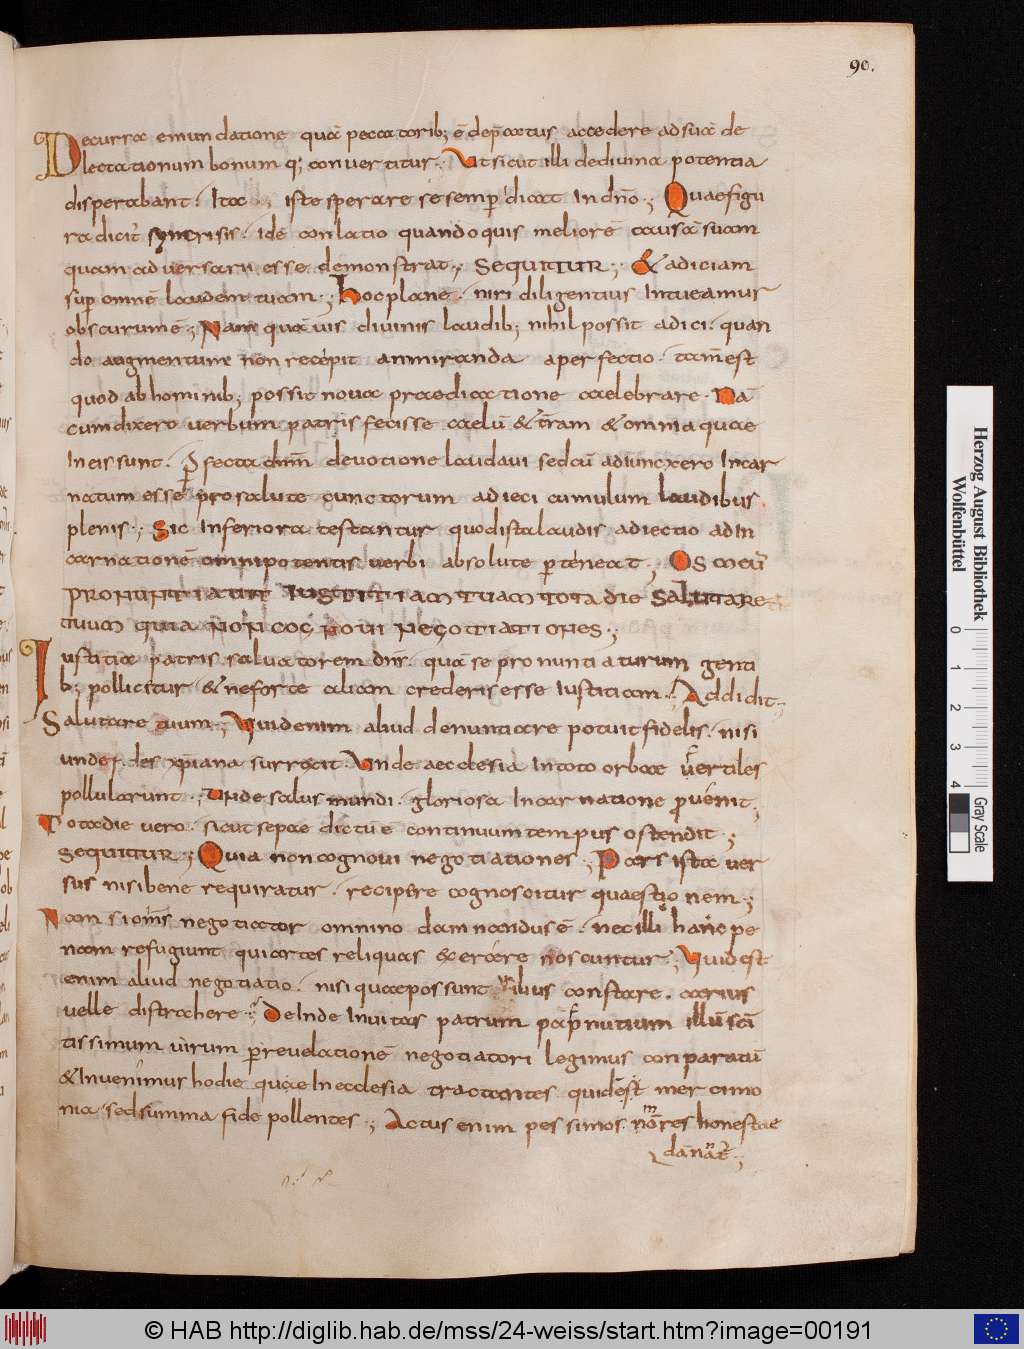 90.
Decurra emundatione quā peccatorib; ē dep̄catus accedere ad suā de
lectationum bonum q; convertitur. Ut sicut illi dedivina potentia
disperabant. Ita iste sperare se semp̄ dicat In dn̄o.; Quae figu
ra dicit̄ syncrisis. idē conlatio quando quis meliorē causā suam
quam adversarii esse demonstrat.; SEQUITUR.; & adiciam
sup̄ omnē laudem tuam.; hoc plane. niri diligentius Intueamur
obscurumē.; Nam quāvis divinis laudib; nihil possit adici. quan
do augmentum non recepit ammiranda a perfectio. tam̄est
quod ab hominib; possit nova praedicatione caelebrare. Nā
cum dixero verbum patris fecisse caelū & t̄ram & omnia quae
In eis sunt. p̄fecta dn̄m devotione laudavi sed cū adiuncxero Incar
natum esse pro salute cunctorum adieci cumulum laudibus
plenis.; Sic Inferiora testantur quod ista laudis adiectio ad In
carnationē omnipotentis verbi absolute p̄teneat.; OS MEŪ
PRONUNTIAVIT IUSTITIAM TUAM TOTA DIE SALUTARE
TUUM QUIA NON COGNOVI NEGOTIATIONES.;
Iustitia patris salvatorem dn̄i. quā se pronuntiaturum genti
b; pollicitur & neforte aliam crederis esse Iustitiam.; Addidit.;
Salutare tuum.; Quid enim aliud denuntiare potuit fidelis. nisi
unde f.des xp̄iana surrexit. Unde aecclesia In toto orbae v̄ertiles
pollularunt.; Unde salus mundi. gloriosa Incarnatione p̄venit.;
Tota die vero. sicut sepae dictū ē continuum tempus ostendit.;
SEQUITUR.; Quia non cognovi negotiationes.; Pars ista ver
sus nisi bene requiratur. recipere cognoscitur quaestionem.;
Nam si om̄s negotiator omnino damnandus ē. nec illi hanc pe
nam refugiunt qui artes reliquas exercere noscuntur.; Quid est
enim aliud negotiatio. nisi quae possunt vilius constare. carius
velle distrahere.; DeInde In vitas patrum pap̄nutium illū scī
tissimum virum p̄ revelationē negotiatori legimus conparatū
& Invenimus hodie quae In ecclesia tractantes quidēst mercimo
nia. sed summa fide pollentes.; Actus enim pessimos. nō res honestae
dānat̄.;
Herzog August Bibliothek
Wolfenbüttel
0 1 2 3 4
Gray Scale
© HAB http://diglib.hab.de/mss/24-weiss/start.htm?image=00191